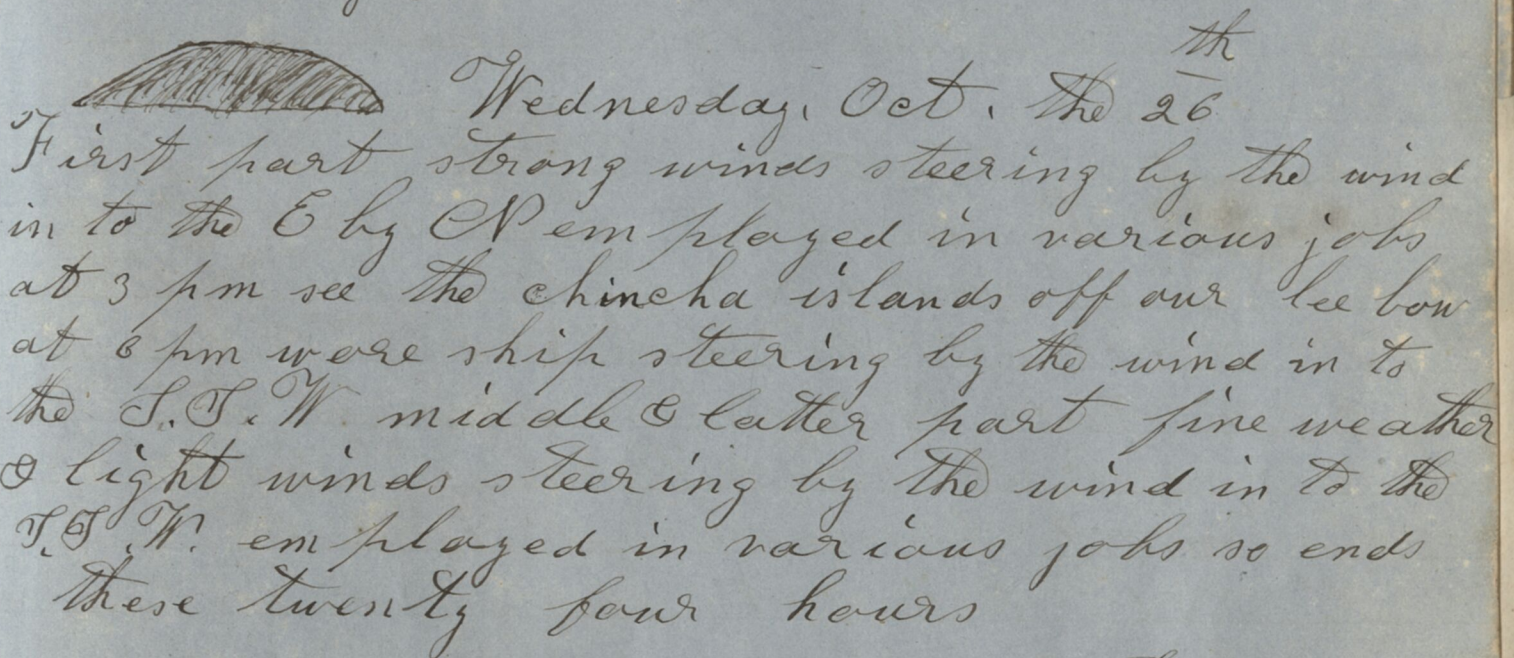 Wednesday, Oct. the 26th
First part strong winds steering by the wind
in to the E by N employed in various jobs
at 3 pm see the chincha islands off our lee bow
at 6 pm wore ship steering by the wind in to
the S.S.W. middle & latter part fine weather
& light winds steering by the wind in to the
S.S.W. employed in various jobs so ends
these twenty four hours